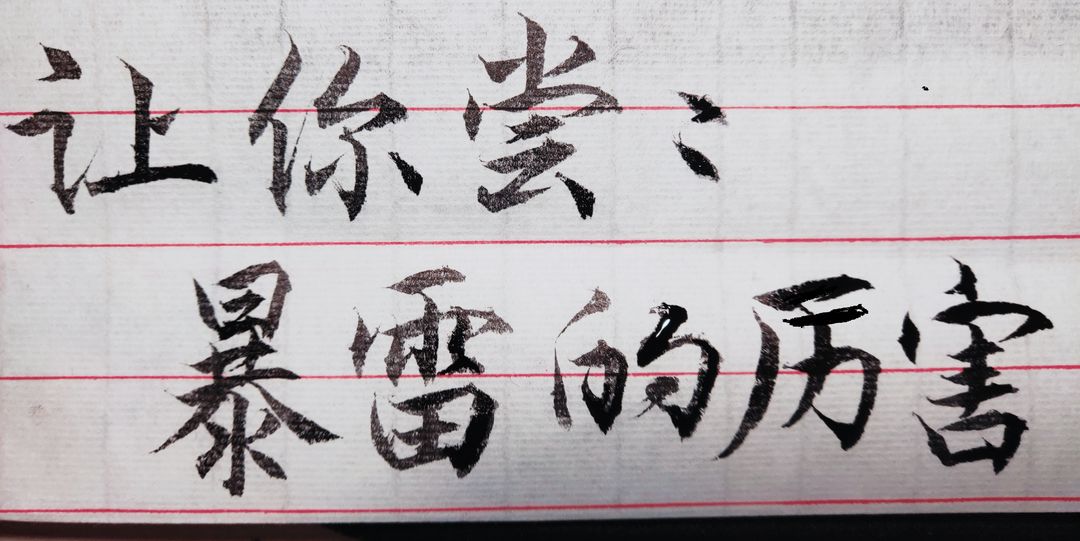 让你尝:
暴雷的厉害